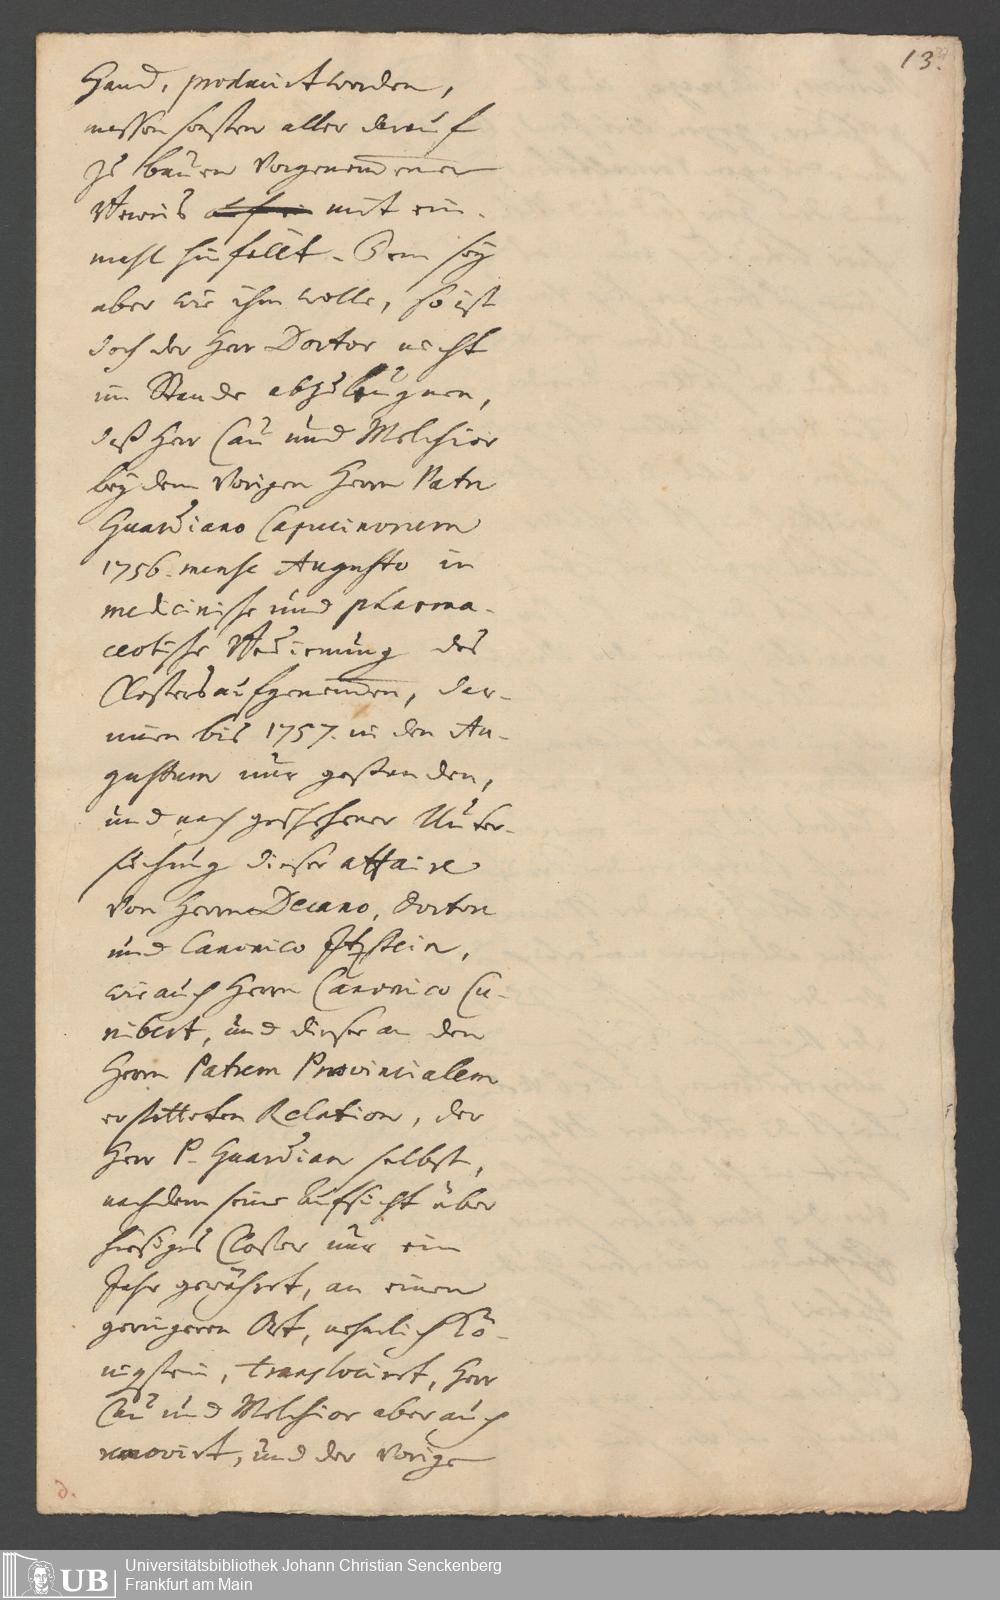 13.
Hand, producirt werden,
massen sonsten aller darauf
zu bauen vorgenommener
Beweis mit ein-
mahl hinfällt. Dem sey
aber wie ihm wolle, so ist
doch der Herr Doctor nicht
im Stande abzuläugnen,
daß Herr Cau und Melchior
bey dem vorigen Herrn Patre
Guardiano Capucinorum
1756. mense Augusto in
medicinische und pharma-
ceotische Bedienung des
Closters aufgenommen, dar-
innen bis 1757. in den Au-
gustum nur gestanden,
und nach geschehener Unter-
suchung dieser affaire
von Herrn Decano, Doctore
und Canonico Itzstein,
wie auch Herrn Canonico Cu-
nibert, und dieser an den
Herrn Patrem Provincialem
erstatteten Relation, der
Herr P. Guardian selbst,
nachdem seine Aufsicht über
hiesiges Closter nur ein
Jahr gewährt, an einen
geringeren Ort, nehmlich Kö-
nigstein, translocirt, Herr
Cau und Melchior aber auch
removirt, und der vorige
d.
UB
Universitätsbibliothek Johann Christian Senckenberg
Frankfurt am Main